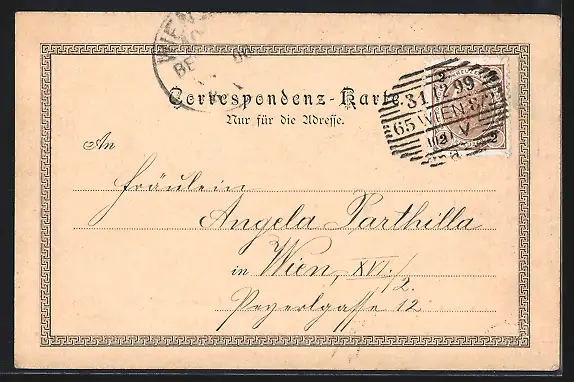 WIEN
Correspondenz-Karte.
Nur für die Adresse.
2
31 12 99
65 WIEN 8/1
V
2 2
An
Fräulein
Angela Parthilla
in Wien, XVI./2.
Peyerlgasse 12